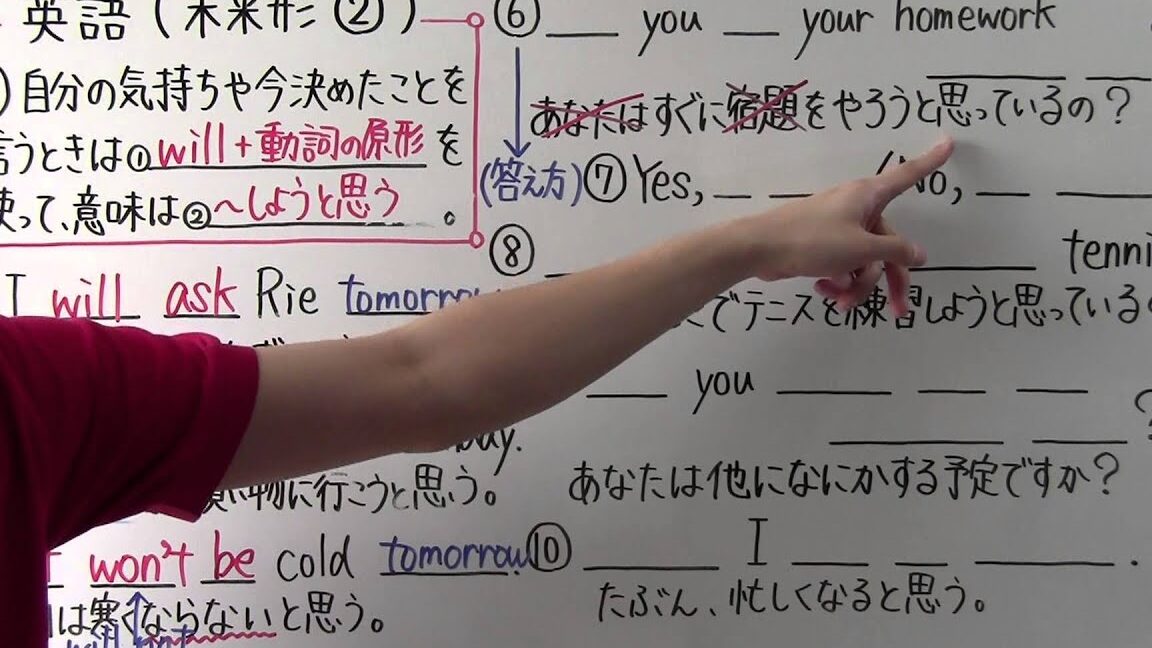 英語(未来形②)
自分の気持ちや今決めたことを
言うときは①will+動詞の原形を
使って、意味は②～しようと思う。
I will ask Rie tomorrow
buy.
買い物に行こうと思う。
won't be cold tomorrow.
は寒くならないと思う。
will not
⑥ ___ you ___ your homework
あなたはすぐに宿題をやろうと思っているの？
(答え方)⑦Yes, ___ ___ / No, ___ ___
⑧ ___ ___ tenni
でテニスを練習しようと思っているの
___ you ___ ___ ___
___ ___ ?
あなたは他になにかする予定ですか？
⑩ ___ I ___ ___ ___.
たぶん、忙しくなると思う。